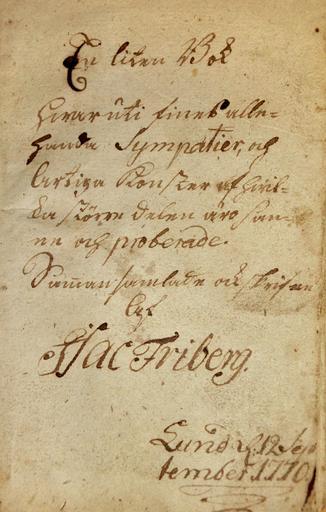 En liten Bok
hwaruti fines alle-
handa Sympatier, och
Artiga Konster af hwil-
ka större delen äro san-
ne och proberade.
Samansamlade och skrifne
af
Isac Friberg.
Lund d. 12 Sep
tember 1770.